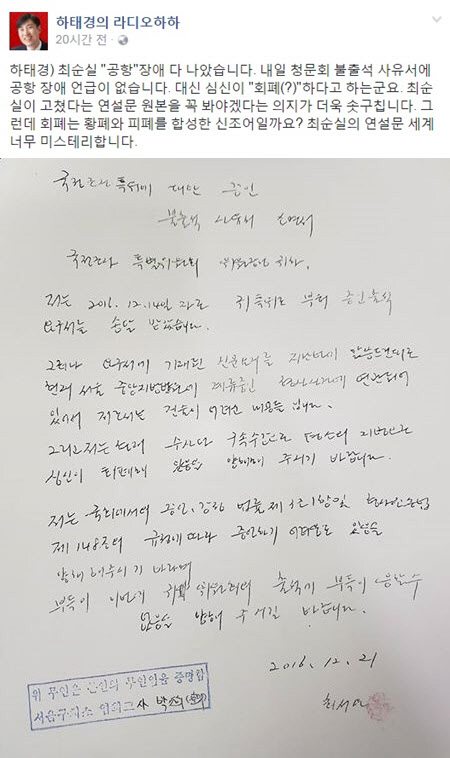 하태경의 라디오하하
20시간 전 ·
하태경) 최순실 "공항"장애 다 나았습니다. 내일 청문회 불출석 사유서에
공항 장애 언급이 없습니다. 대신 심신이 "회폐(?)"하다고 하는군요. 최순
실이 고쳤다는 연설문 원본을 꼭 봐야겠다는 의지가 더욱 솟구칩니다. 그
런데 회폐는 황폐와 피폐를 합성한 신조어일까요? 최순실의 연설문 세계
너무 미스테리합니다.
국정조사 특위에 대한 증인
불출석 사유서 소명서
국정조사 특별위원회 위원장님 귀하.
저는 2016.12.14일 자로 귀 특위로 부터 증인출석
요구서를 송달 받았습니다.
그러나 요구서에 기재된
현재 서울 중앙지방법원에 계류중인 형사사건에 연관되어
있어서 저로서는 진술이 어려운 내용들 입니다.
그리고 저는 현재 수사와 구속수감으로
심신이 회폐해 있음을 양해해 주시기 바랍니다.
저는 국회에서의 증언, 감정 법률 제3조1항 및 형사소송법
제148조의 규정에 따라 증언하기 어려움로 있음을
양해해주시기 바라며
부득이 이번에 귀 위원회의 출석에 부득이 응할수
없음을 양해 주시길 바랍니다.
2016. 12. 21
최서원
위 무인은 본인의 무인임을 증명함
서울구치소